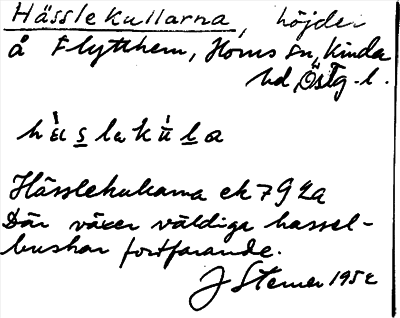 Hässlekullarna, höjder
å Flytthem, Horns sn, Kinda
hd, Östg. l.
hä̀slekùla
Hässlekullarna ek 79 2a
Där växer väldiga hassel-
buskar fortfarande.
J Sterner 195